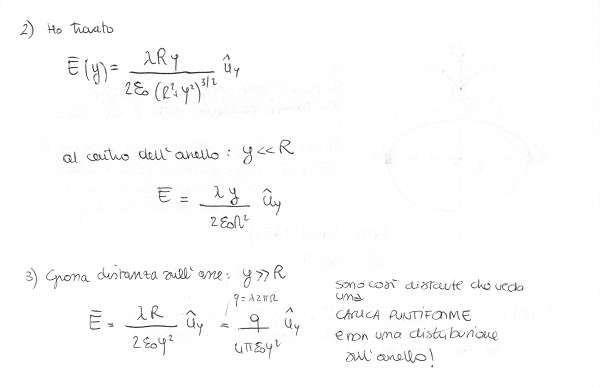 2) Ho trovato
Ē(y) = λRy / 2ε₀(R²+y²)^3/2 û_y
al centro dell'anello: y<<R
Ē = λy / 2ε₀R² û_y
3) Grossa distanza sull'asse: y>>R
q=λ2πR
Ē = λR / 2ε₀y² û_y = q / 4πε₀y² û_y
sono così distante che vedo
una
CARICA PUNTIFORME
e non una distribuzione
sull'anello!